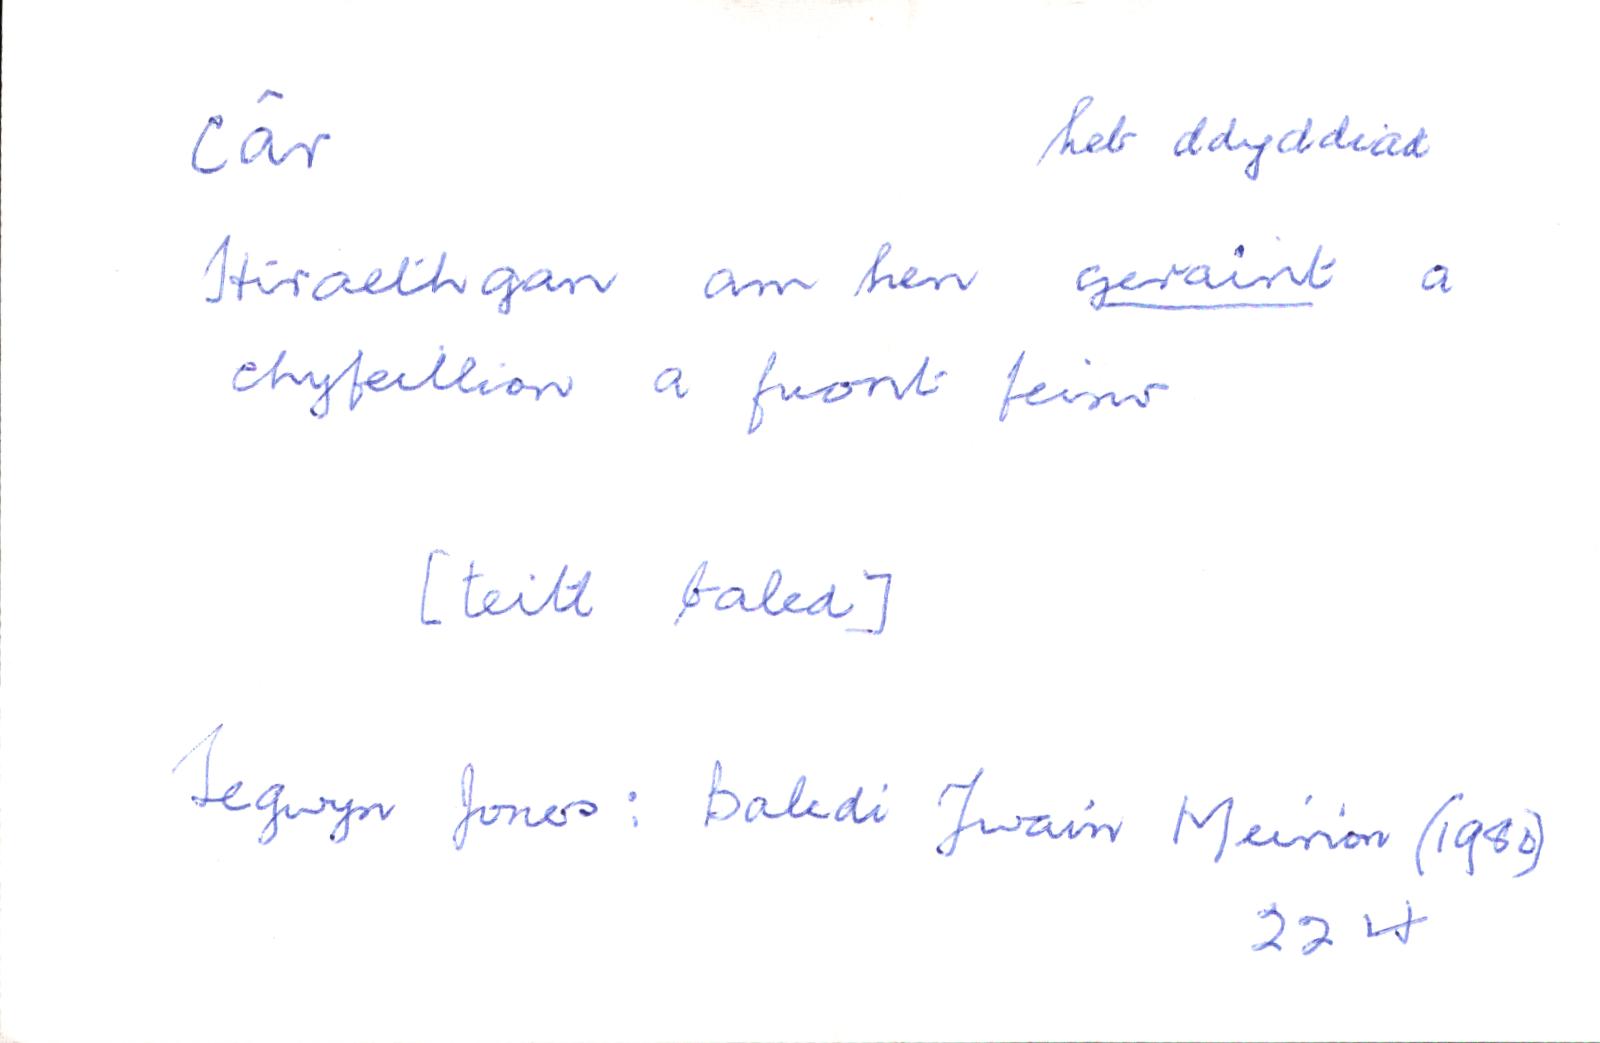 câr heb ddyddiad
Hiraethgan am hen geraint a
chyfeillion a fuont feirw
[teitl baled]
Tegwyn Jones: Baledi Ywain Meirion (1980)
224